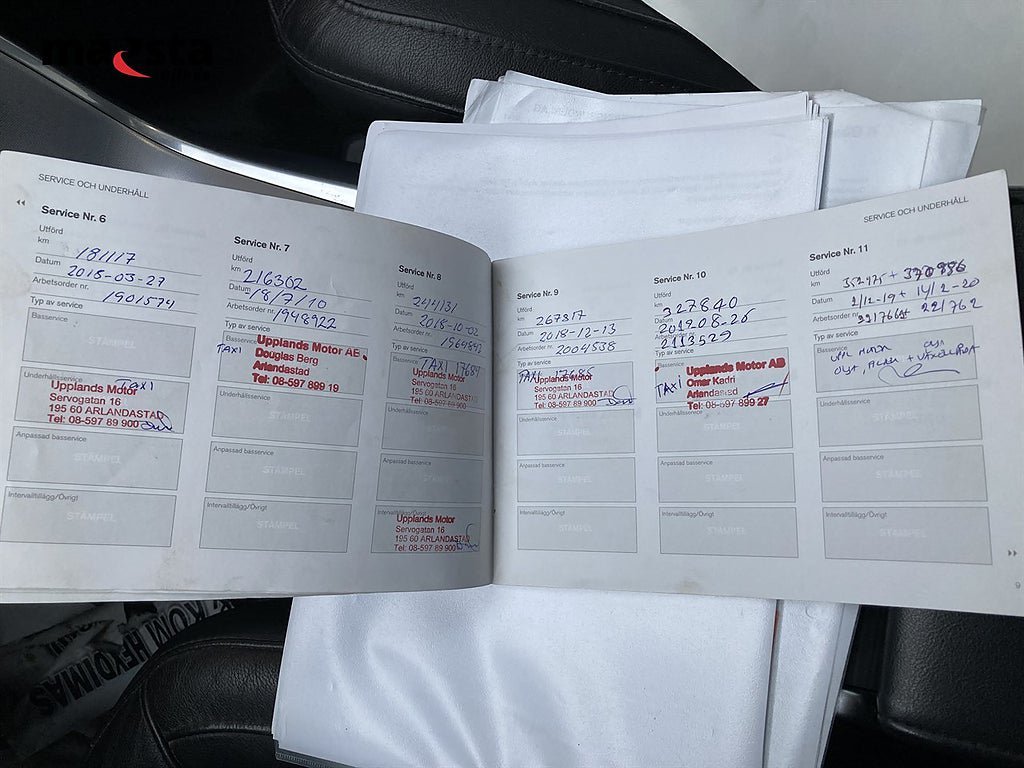 mazsta
SERVICE OCH UNDERHÅLL
Service Nr. 6
Utförd
km 181117
Datum 2018-03-27
Arbetsorder nr. 1901574
Typ av service
Basservice
STÄMPEL
Underhållsservice
TAXI
Upplands Motor
Servogatan 16
195 60 ARLANDASTAD
Tel: 08-597 89 900
Anpassad basservice
STÄMPEL
Intervalltillägg/Övrigt
STÄMPEL
Service Nr. 7
Utförd
km 216302
Datum 18/7/10
Arbetsorder nr. 1948922
Typ av service
Basservice
TAXI
Upplands Motor AB
Douglas Berg
Arlandastad
Tel: 08-597 899 19
Underhållsservice
STÄMPEL
Anpassad basservice
STÄMPEL
Intervalltillägg/Övrigt
STÄMPEL
Service Nr. 8
Utförd
km 244131
Datum 2018-10-02
Arbetsorder nr.
Typ av service
Basservice
TAXI 17684
Upplands Motor
Servogatan 16
195 60 ARLANDASTAD
Tel: 08-597 89 900
Underhållsservice
STÄMPEL
Anpassad basservice
STÄMPEL
Intervalltillägg/Övrigt
Upplands Motor
Servogatan 16
195 60 ARLANDASTAD
Tel: 08-597 89 900
SERVICE OCH UNDERHÅLL
Service Nr. 9
Utförd
km 267817
Datum 2018-12-13
Arbetsorder nr. 2004538
Typ av service
TAXI 17685
Upplands Motor
Servogatan 16
195 60 ARLANDASTAD
Tel: 08-597 89 900
Underhållsservice
STÄMPEL
Anpassad basservice
STÄMPEL
Intervalltillägg/Övrigt
STÄMPEL
Service Nr. 10
Utförd
km 327840
Datum 201908-26
Arbetsorder nr. 2113529
Typ av service
Basservice
TAXI
Upplands Motor AB
Omar Kadri
Arlandastad
Tel: 08-597 899 27
Underhållsservice
STÄMPEL
Anpassad basservice
STÄMPEL
Intervalltillägg/Övrigt
STÄMPEL
Service Nr. 11
Utförd
km 352475 + 370886
Datum 2/12-19 + 14/2-20
Arbetsorder nr. 221762
Typ av service
Basservice
Underhållsservice
STÄMPEL
Anpassad basservice
STÄMPEL
Intervalltillägg/Övrigt
STÄMPEL
9